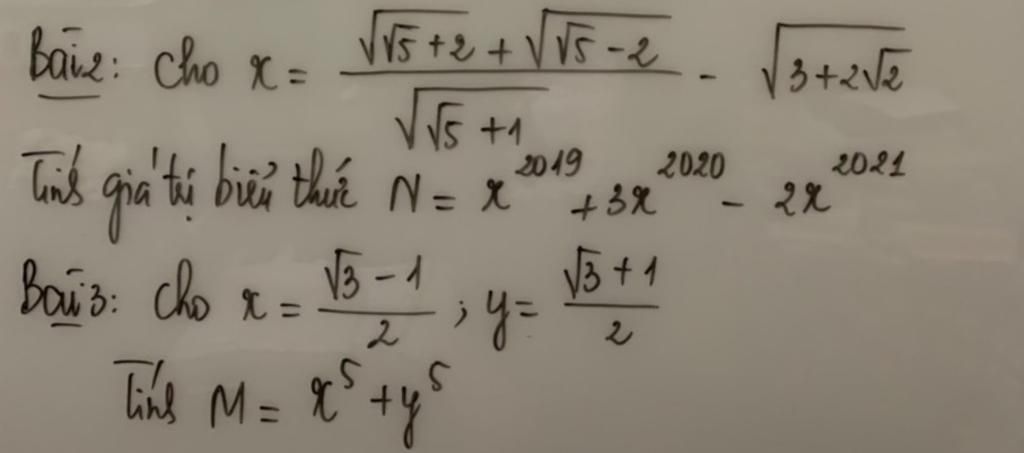 Bài 2: Cho x = \frac{\sqrt{\sqrt{5}+2}+\sqrt{\sqrt{5}-2}}{\sqrt{\sqrt{5}+1}} - \sqrt{3+2\sqrt{2}}
Tính giá trị biểu thức N = x^{2019} + 3x^{2020} - 2x^{2021}
Bài 3: Cho x = \frac{\sqrt{3}-1}{2} ; y = \frac{\sqrt{3}+1}{2}
Tính M = x^5 + y^5